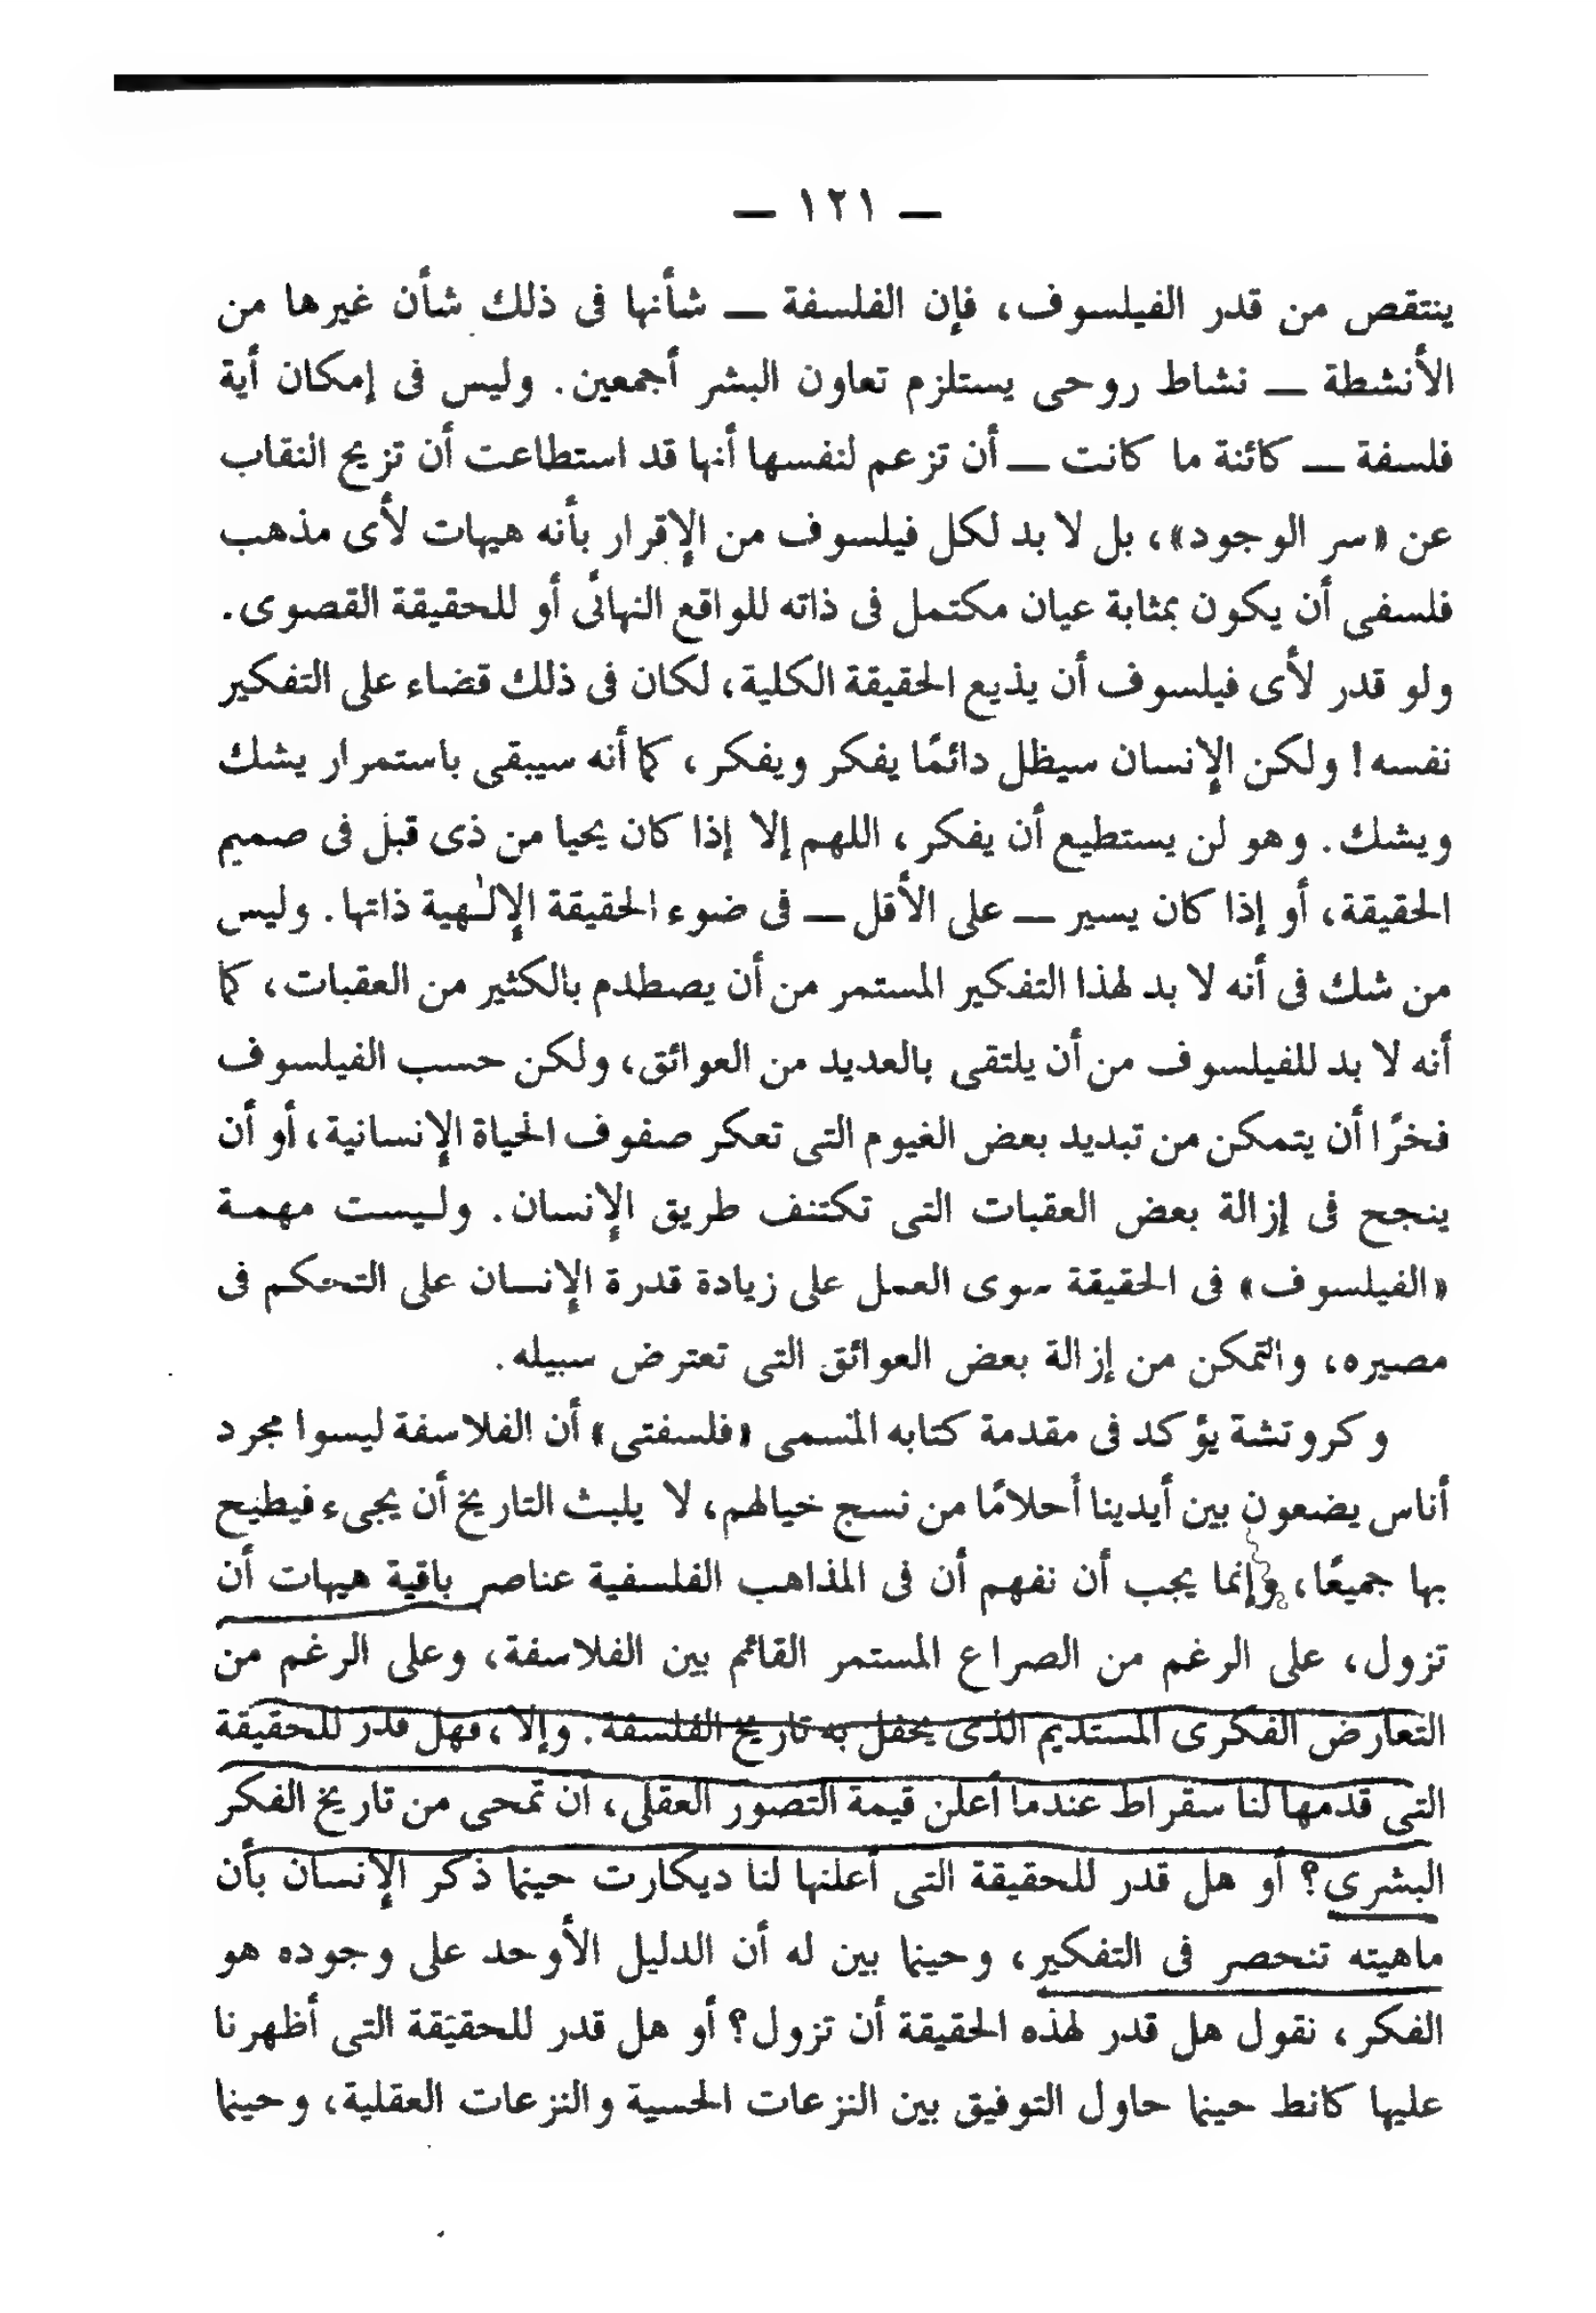 — ١٢١ —
ينتقص من قدر الفيلسوف، فإن الفلسفة — شأنها فى ذلك شأن غيرها من
الأنشطة — نشاط روحى يستلزم تعاون البشر أجمعين. وليس فى إمكان أية
فلسفة — كائنة ما كانت — أن تزعم لنفسها أنها قد استطاعت أن تزيح النقاب
عن «سر الوجود»، بل لا بد لكل فيلسوف من الإقرار بأنه هيهات لأى مذهب
فلسفى أن يكون بمثابة عيان مكتمل فى ذاته للواقع النهائى أو للحقيقة القصوى.
ولو قدر لأى فيلسوف أن يذيع الحقيقة الكلية، لكان فى ذلك قضاء على التفكير
نفسه! ولكن الإنسان سيظل دائمًا يفكر ويفكر، كما أنه سيبقى باستمرار يشك
ويشك. وهو لن يستطيع أن يفكر، اللهم إلا إذا كان يحيا من ذى قبل فى صميم
الحقيقة، أو إذا كان يسير — على الأقل — فى ضوء الحقيقة الإلٰهية ذاتها. وليس
من شك فى أنه لا بد لهذا التفكير المستمر من أن يصطدم بالكثير من العقبات، كما
أنه لا بد للفيلسوف من أن يلتقى بالعديد من العوائق، ولكن حسب الفيلسوف
فخرًا أن يتمكن من تبديد بعض الغيوم التى تعكر صفوف الحياة الإنسانية، أو أن
ينجح فى إزالة بعض العقبات التى تكتنف طريق الإنسان. وليست مهمة
«الفيلسوف» فى الحقيقة سوى العمل على زيادة قدرة الإنسان على التحكم فى
مصيره، والتمكن من إزالة بعض العوائق التى تعترض سبيله.
وكروتشة يؤكد فى مقدمة كتابه المسمى «فلسفتى» أن الفلاسفة ليسوا مجرد
أناس يضعون بين أيدينا أحلامًا من نسج خيالهم، لا يلبث التاريخ أن يجىء فيطيح
بها جميعًا، وإنما يجب أن نفهم أن فى المذاهب الفلسفية عناصر باقية هيهات أن
تزول، على الرغم من الصراع المستمر القائم بين الفلاسفة، وعلى الرغم من
التعارض الفكرى المستديم الذى يحفل به تاريخ الفلسفة. وإلا، فهل قدر للحقيقة
التى قدمها لنا سقراط عندما أعلن قيمة التصور العقلى، أن تمحى من تاريخ الفكر
البشرى؟ أو هل قدر للحقيقة التى أعلنها لنا ديكارت حينما ذكر الإنسان بأن
ماهيته تنحصر فى التفكير، وحينما بين له أن الدليل الأوحد على وجوده هو
الفكر، نقول هل قدر لهذه الحقيقة أن تزول؟ أو هل قدر للحقيقة التى أظهرنا
عليها كانط حينما حاول التوفيق بين النزعات الحسية والنزعات العقلية، وحينما